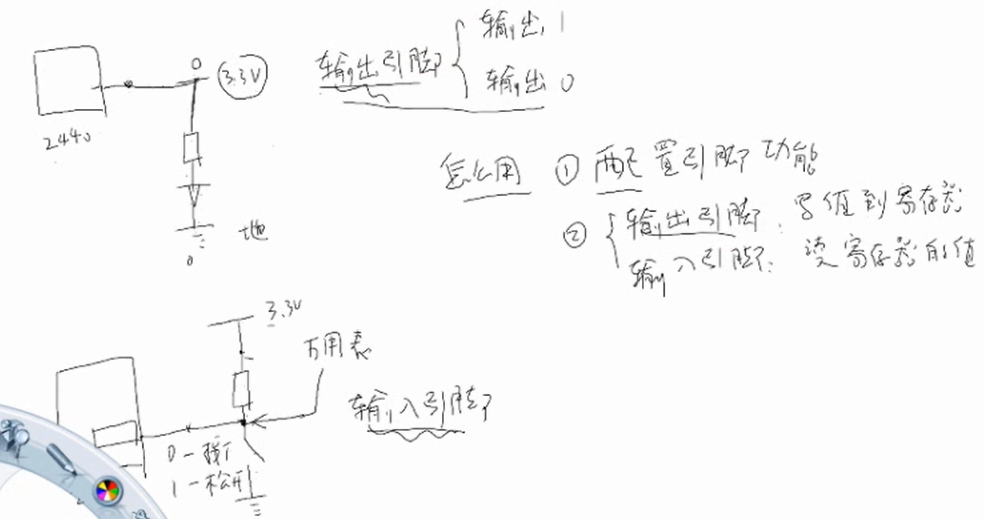 0
3.3V
2440
地
0
输出引脚
输出 1
输出 0
怎么用
① 配置引脚功能
② 输出引脚: 写值到寄存器
输入引脚: 读寄存器的值
3.3V
万用表
输入引脚
0-按下
1-松开